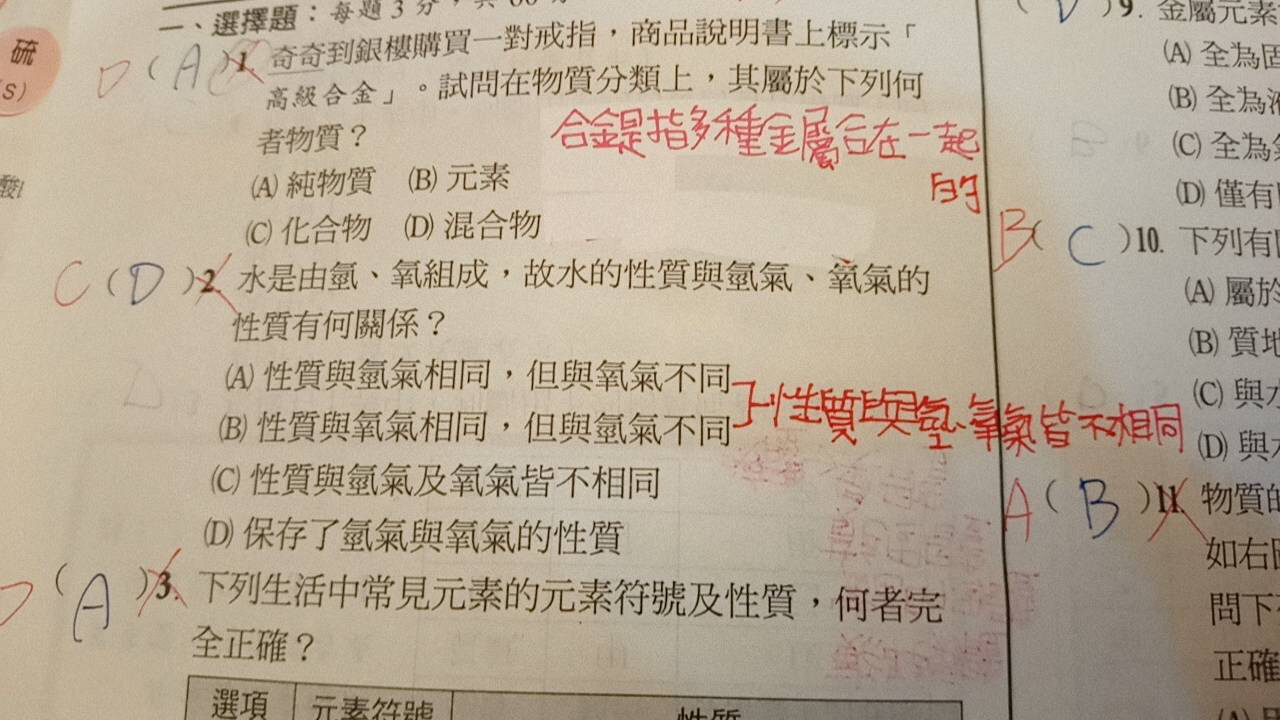 硫
(S)
一、選擇題：每題3分，共60分
D (A) 1. 奇奇到銀樓購買一對戒指，商品說明書上標示「
高級合金」。試問在物質分類上，其屬於下列何
者物質？
合金是指多種金屬合在一起
的
(A) 純物質 (B) 元素
(C) 化合物 (D) 混合物
C (D) 2. 水是由氫、氧組成，故水的性質與氫氣、氧氣的
性質有何關係？
(A) 性質與氫氣相同，但與氧氣不同
(B) 性質與氧氣相同，但與氫氣不同
性質與氫、氧氣皆不相同
(C) 性質與氫氣及氧氣皆不相同
(D) 保存了氫氣與氧氣的性質
D (A) 3. 下列生活中常見元素的元素符號及性質，何者完
全正確？
選項 元素符號 性質
(D) 9. 金屬元素
(A) 全為固
(B) 全為液
(C) 全為氣
(D) 僅有
B (C) 10. 下列有
(A) 屬於
(B) 質地
(C) 與
(D) 與
A (B) 11. 物質的
如右
問下
正確